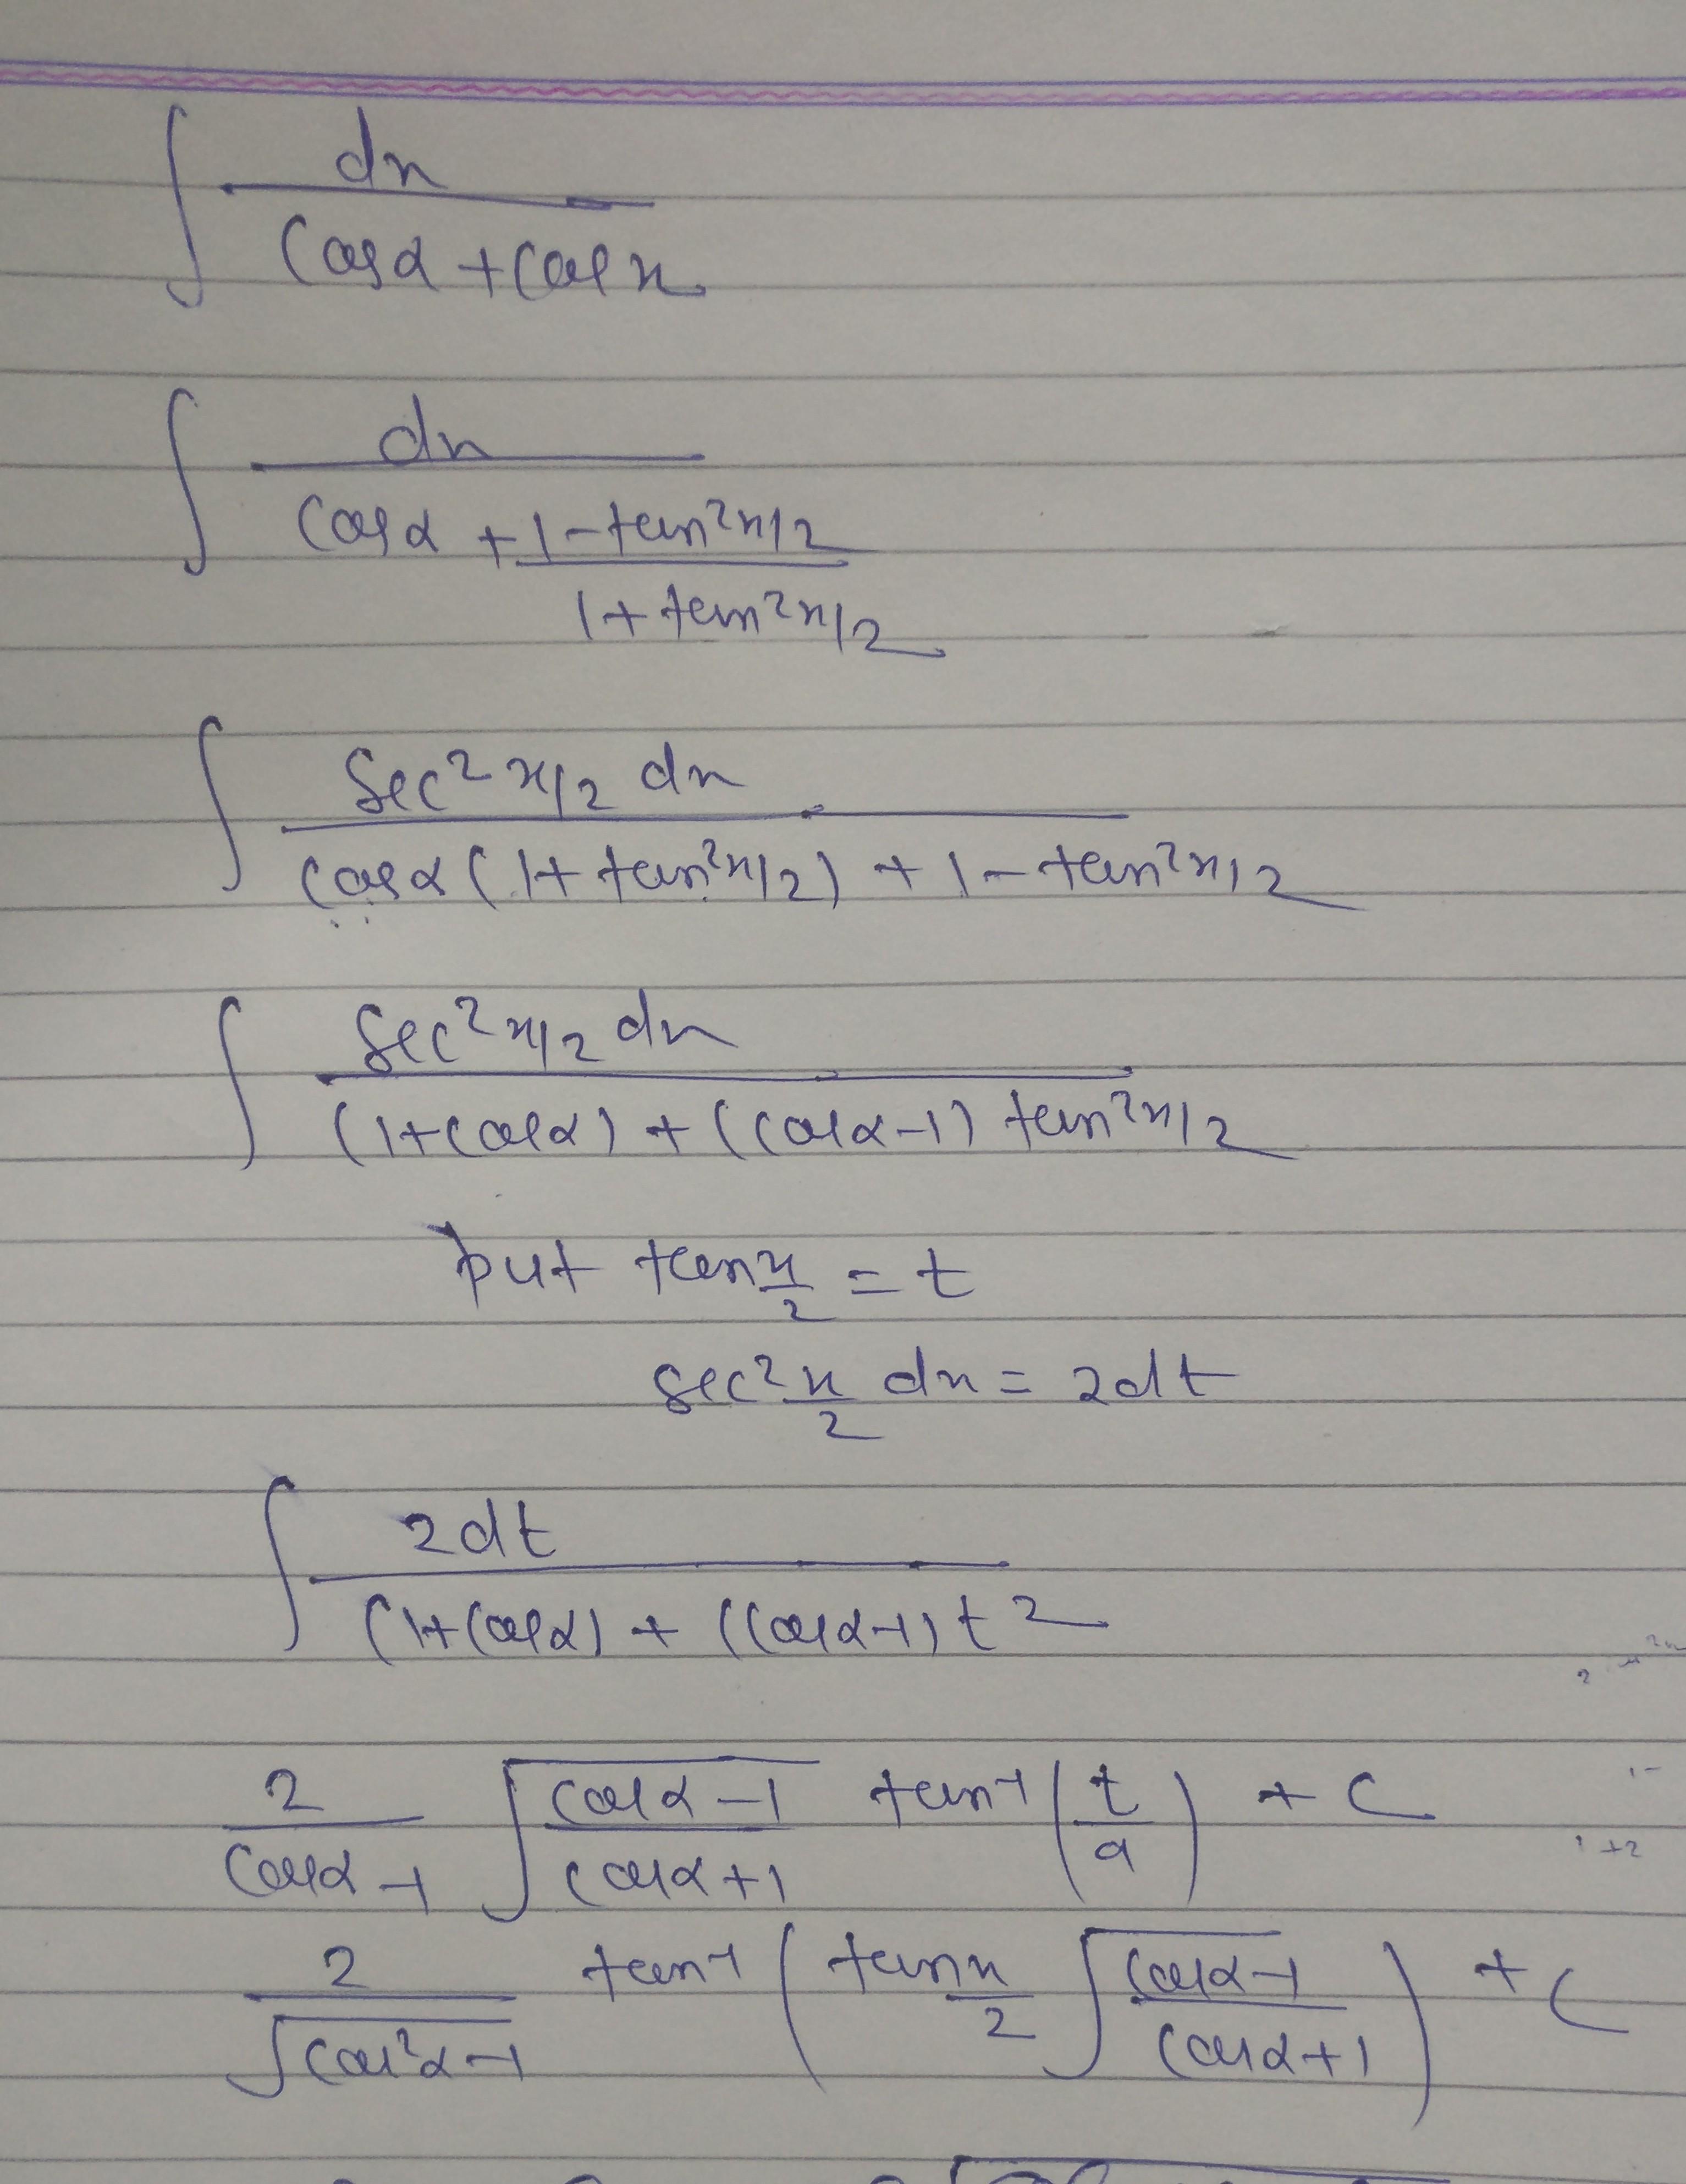 ∫ dx / (cosα + cosx)
∫ dx / (cosα + (1 - tan²x/2) / (1 + tan²x/2))
∫ sec²x/2 dx / (cosα(1 + tan²x/2) + 1 - tan²x/2)
∫ sec²x/2 dx / ((1+cosα) + (cosα-1) tan²x/2)
put tan x/2 = t
sec² x/2 dx = 2dt
∫ 2dt / ((1+cosα) + (cosα-1)t²)
2/(cosα-1) √((cosα-1)/(cosα+1)) tan⁻¹(t/a) + C
2/√(cos²α-1) tan⁻¹(tan x/2 √((cosα-1)/(cosα+1))) + C